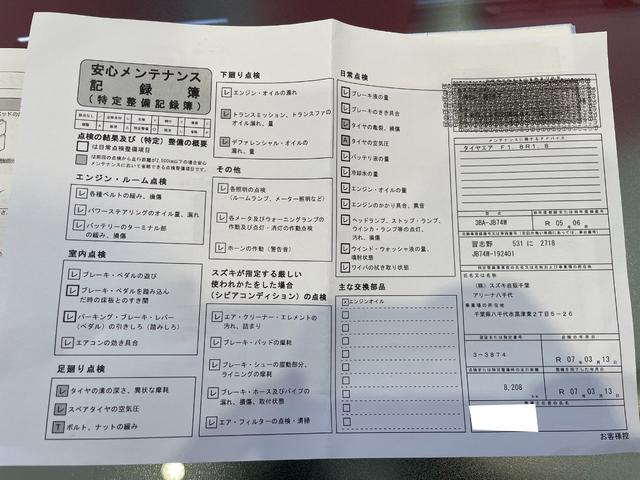 安心メンテナンス
記録簿
(特定整備記録簿)
点検の結果及び(特定)整備の概要
は日常点検整備項目
エンジン・ルーム点検
レ 各種ベルトの緩み、損傷
レ パワーステアリングのオイル量、漏れ
レ バッテリーのターミナル部
の緩み、損傷
室内点検
レ ブレーキ・ペダルの遊び
レ ブレーキ・ペダルを踏み込ん
だ時の床板とのすき間
レ パーキング・ブレーキ・レバー
(ペダル)の引きしろ(踏みしろ)
レ エアコンの効き具合
足廻り点検
レ タイヤの溝の深さ、異状な摩耗
レ スペアタイヤの空気圧
T ボルト、ナットの緩み
下廻り点検
レ エンジン・オイルの漏れ
レ トランスミッション、トランスファの
オイル漏れ、量
レ デファレンシャル・オイルの
漏れ、量
その他
レ 各照明の点検
(ルームランプ、メーター照明など)
レ 各メータ及びウォーニングランプの
作動及び点灯・消灯の作動点検
レ ホーンの作動(警告音)
スズキが指定する厳しい
使われかたをした場合
(シビアコンディション)の点検
レ エア・クリーナー・エレメントの
汚れ、詰まり
レ ブレーキ・パッドの摩耗
レ ブレーキ・シューの摺動部分、
ライニングの摩耗
レ ブレーキ・ホース及びパイプの
漏れ、損傷、取付状態
レ エア・フィルターの点検・清掃
日常点検
レ ブレーキ液の量
レ ブレーキのきき具合
レ タイヤの亀裂、損傷
A タイヤの空気圧
レ バッテリ液の量
レ 冷却水の量
レ エンジン・オイルの量
レ エンジンのかかり具合、異音
レ ヘッドランプ、ストップ・ランプ、
ウインカ・ランプ等の点灯、
汚れ、損傷
レ ウインド・ウォッシャ液の量、
噴射状態
レ ワイパの拭き取り状態
主な交換部品
× エンジンオイル
メンテナンスに関するアドバイス
タイヤエア F1.8R1.8
型式
3BA-JB74W
R 05 06
習志野 531 に 2718
JB74W-192401
氏名又は名称
(株)スズキ自販千葉
アリーナ八千代
事業場の所在地
千葉県八千代市高津東2丁目5-26
3-3874
点検の年月日
R 07 年 03 月 13 日
8,208
R 07 年 03 月 13 日
お客様控